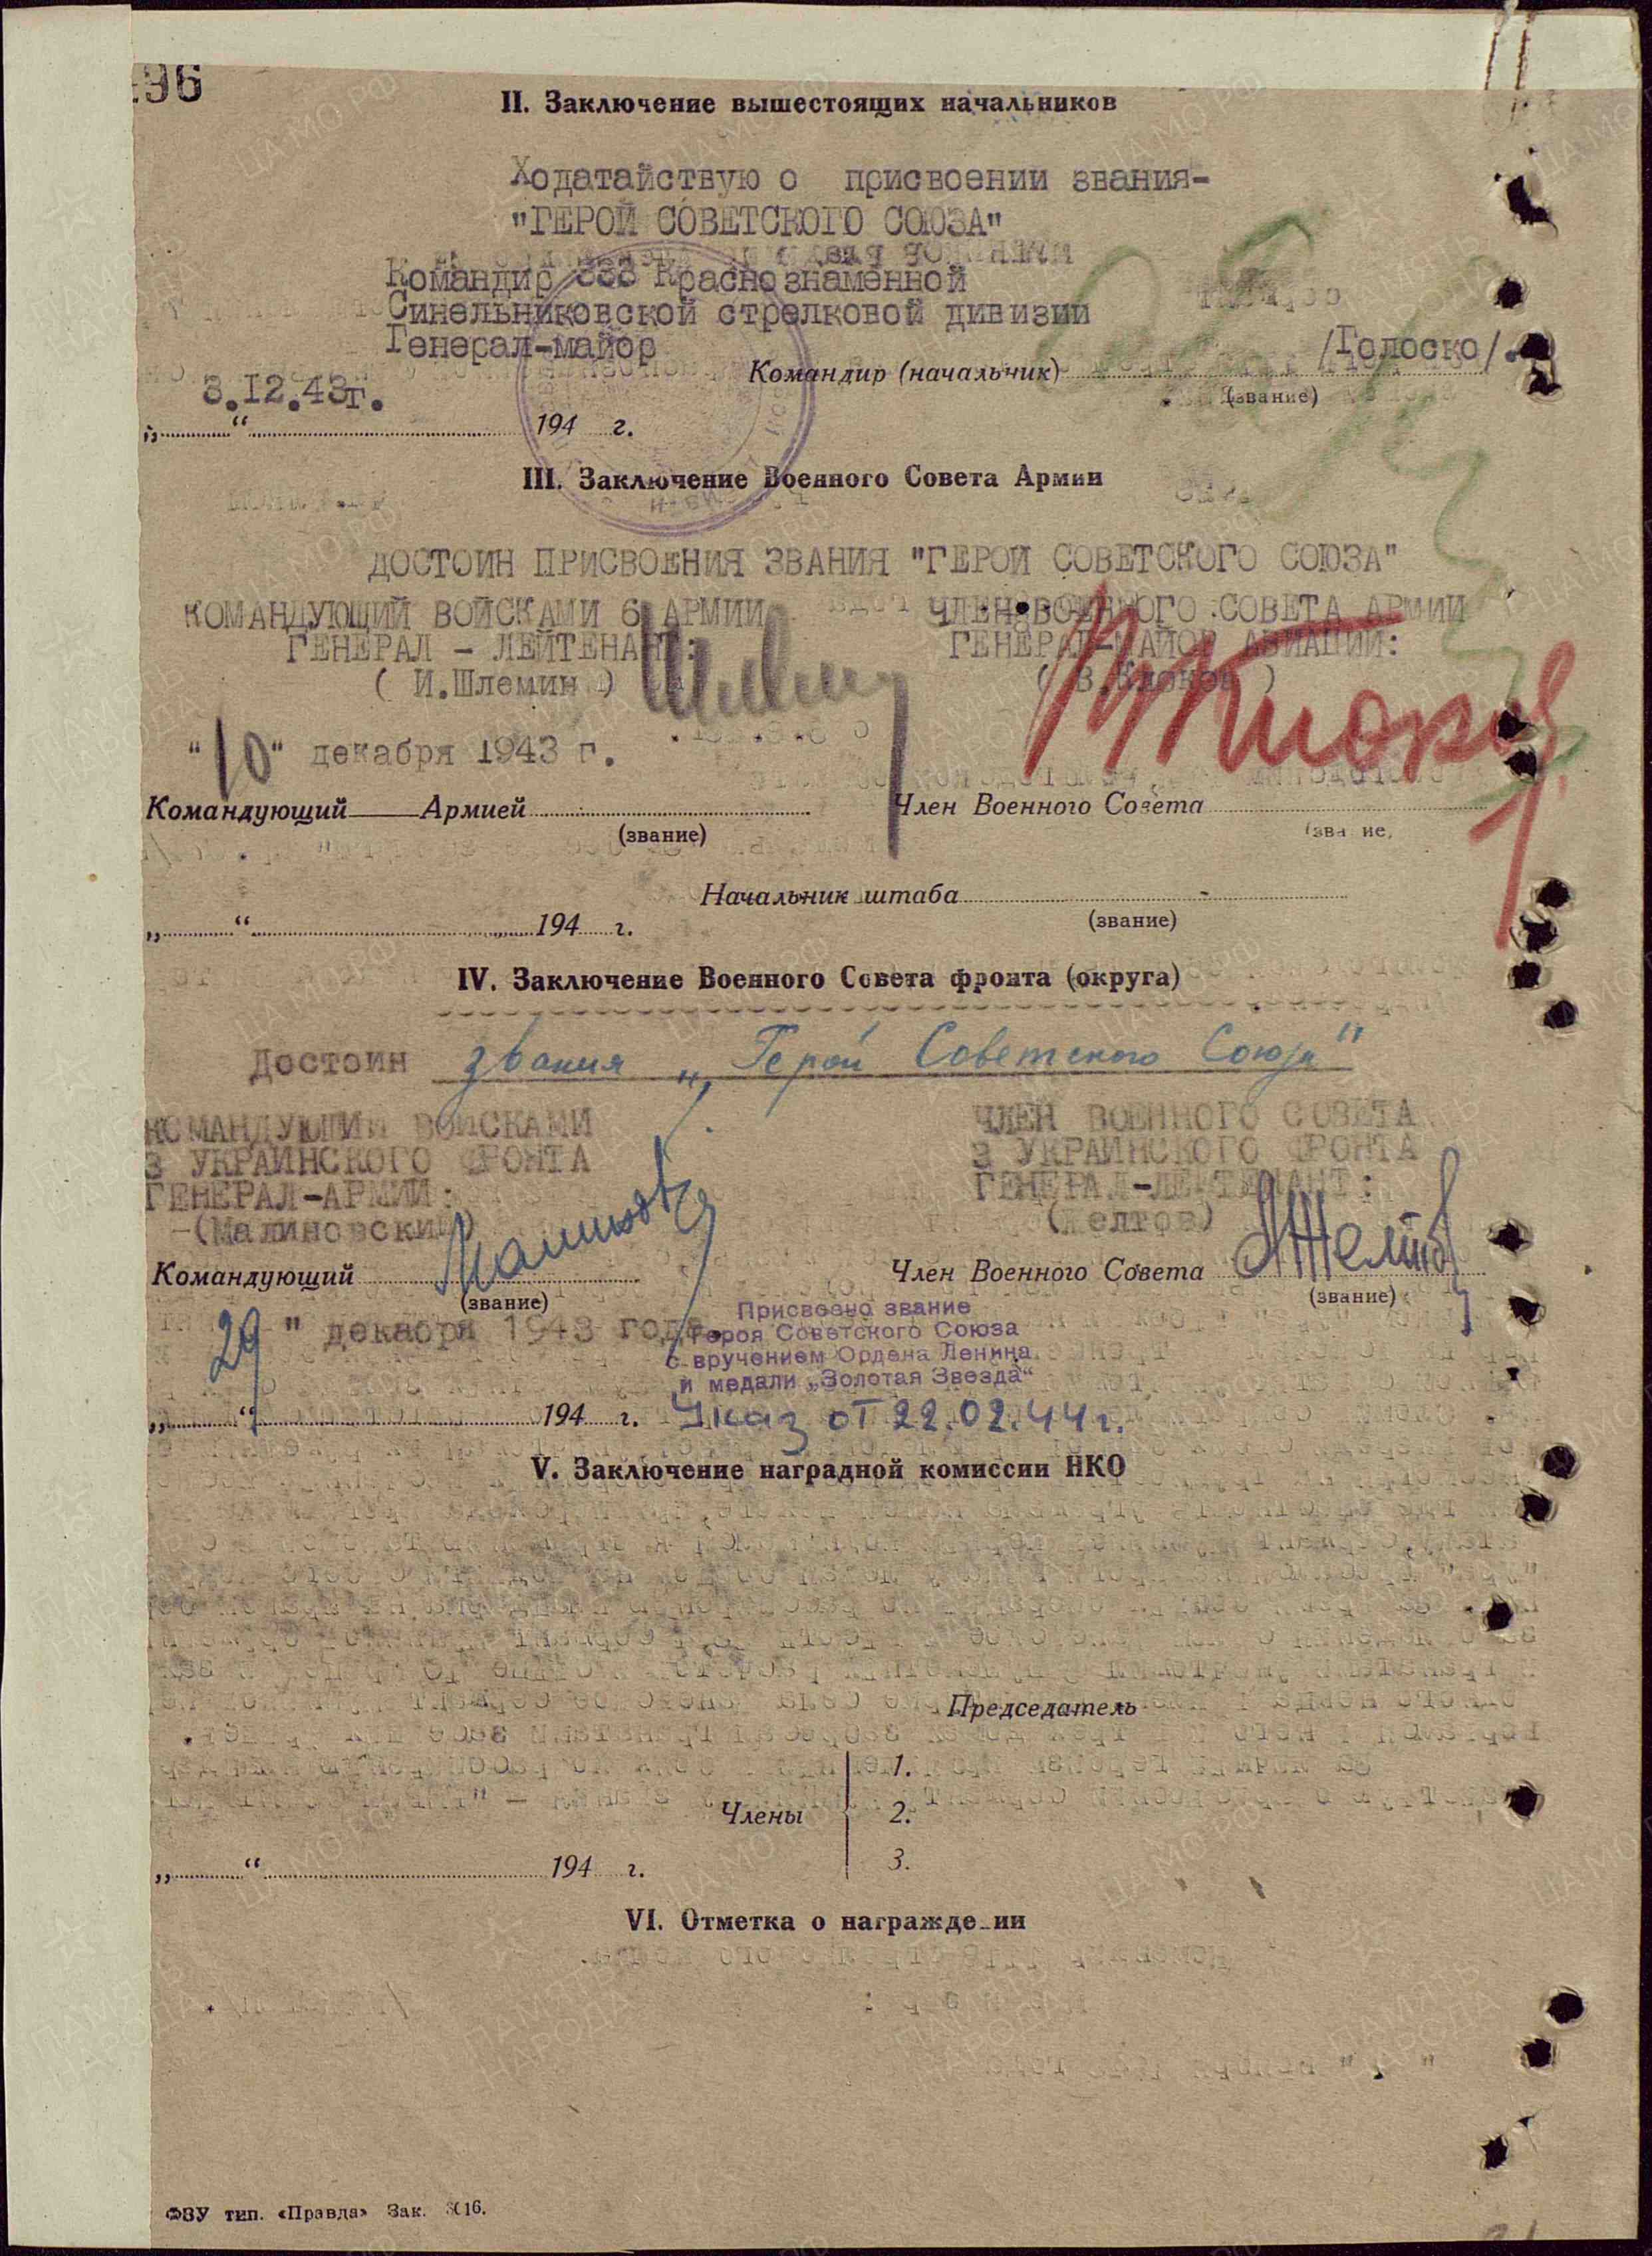 96
II. Заключение вышестоящих начальников
Ходатайствую о присвоении звания-
"ГЕРОЙ СОВЕТСКОГО СОЮЗА"
Командир 333 Краснознаменной
Синельниковской стрелковой дивизии
Генерал-майор /Голоско/.
Командир (начальник)
(звание)
3.I2.43г.
„ “ 194 г.
III. Заключение Военного Совета Армии
ДОСТОИН ПРИСВОЕНИЯ ЗВАНИЯ "ГЕРОИ СОВЕТСКОГО СОЮЗА"
КОМАНДУЮЩИЙ ВОЙСКАМИ 6 АРМИИ ЧЛЕН ВОЕННОГО СОВЕТА АРМИИ
ГЕНЕРАЛ - ЛЕЙТЕНАНТ: ГЕНЕРАЛ-МАЙОР АВИАЦИИ:
( И.Шлемин ) ( В.Клоков )
"10" декабря 1943 г.
Командующий Армией Член Военного Совета
(звание) (зва ие)
Начальник штаба
(звание)
„ “ 194 г.
IV. Заключение Военного Совета фронта (округа)
Достоин звания „Герой Советского Союза"
КОМАНДУЮЩИЙ ВОЙСКАМИ ЧЛЕН ВОЕННОГО СОВЕТА
3 УКРАИНСКОГО ФРОНТА 3 УКРАИНСКОГО ФРОНТА
ГЕНЕРАЛ-АРМИИ: ГЕНЕРАЛ-ЛЕЙТЕНАНТ:
-(Малиновский) (Желтов)
Командующий Член Военного Совета
(звание) (звание)
29 " декабря 1943 года.
Присвоено звание
Героя Советского Союза
с вручением Ордена Ленина
и медали „Золотая Звезда“
„ “ 194 г. Указ от 22.02.44г.
V. Заключение наградной комиссии НКО
Председатель
1.
Члены 2.
3.
„ “ 194 г.
VI. Отметка о награжде ии
ФЗУ тип. «Правда» Зак. 3016.